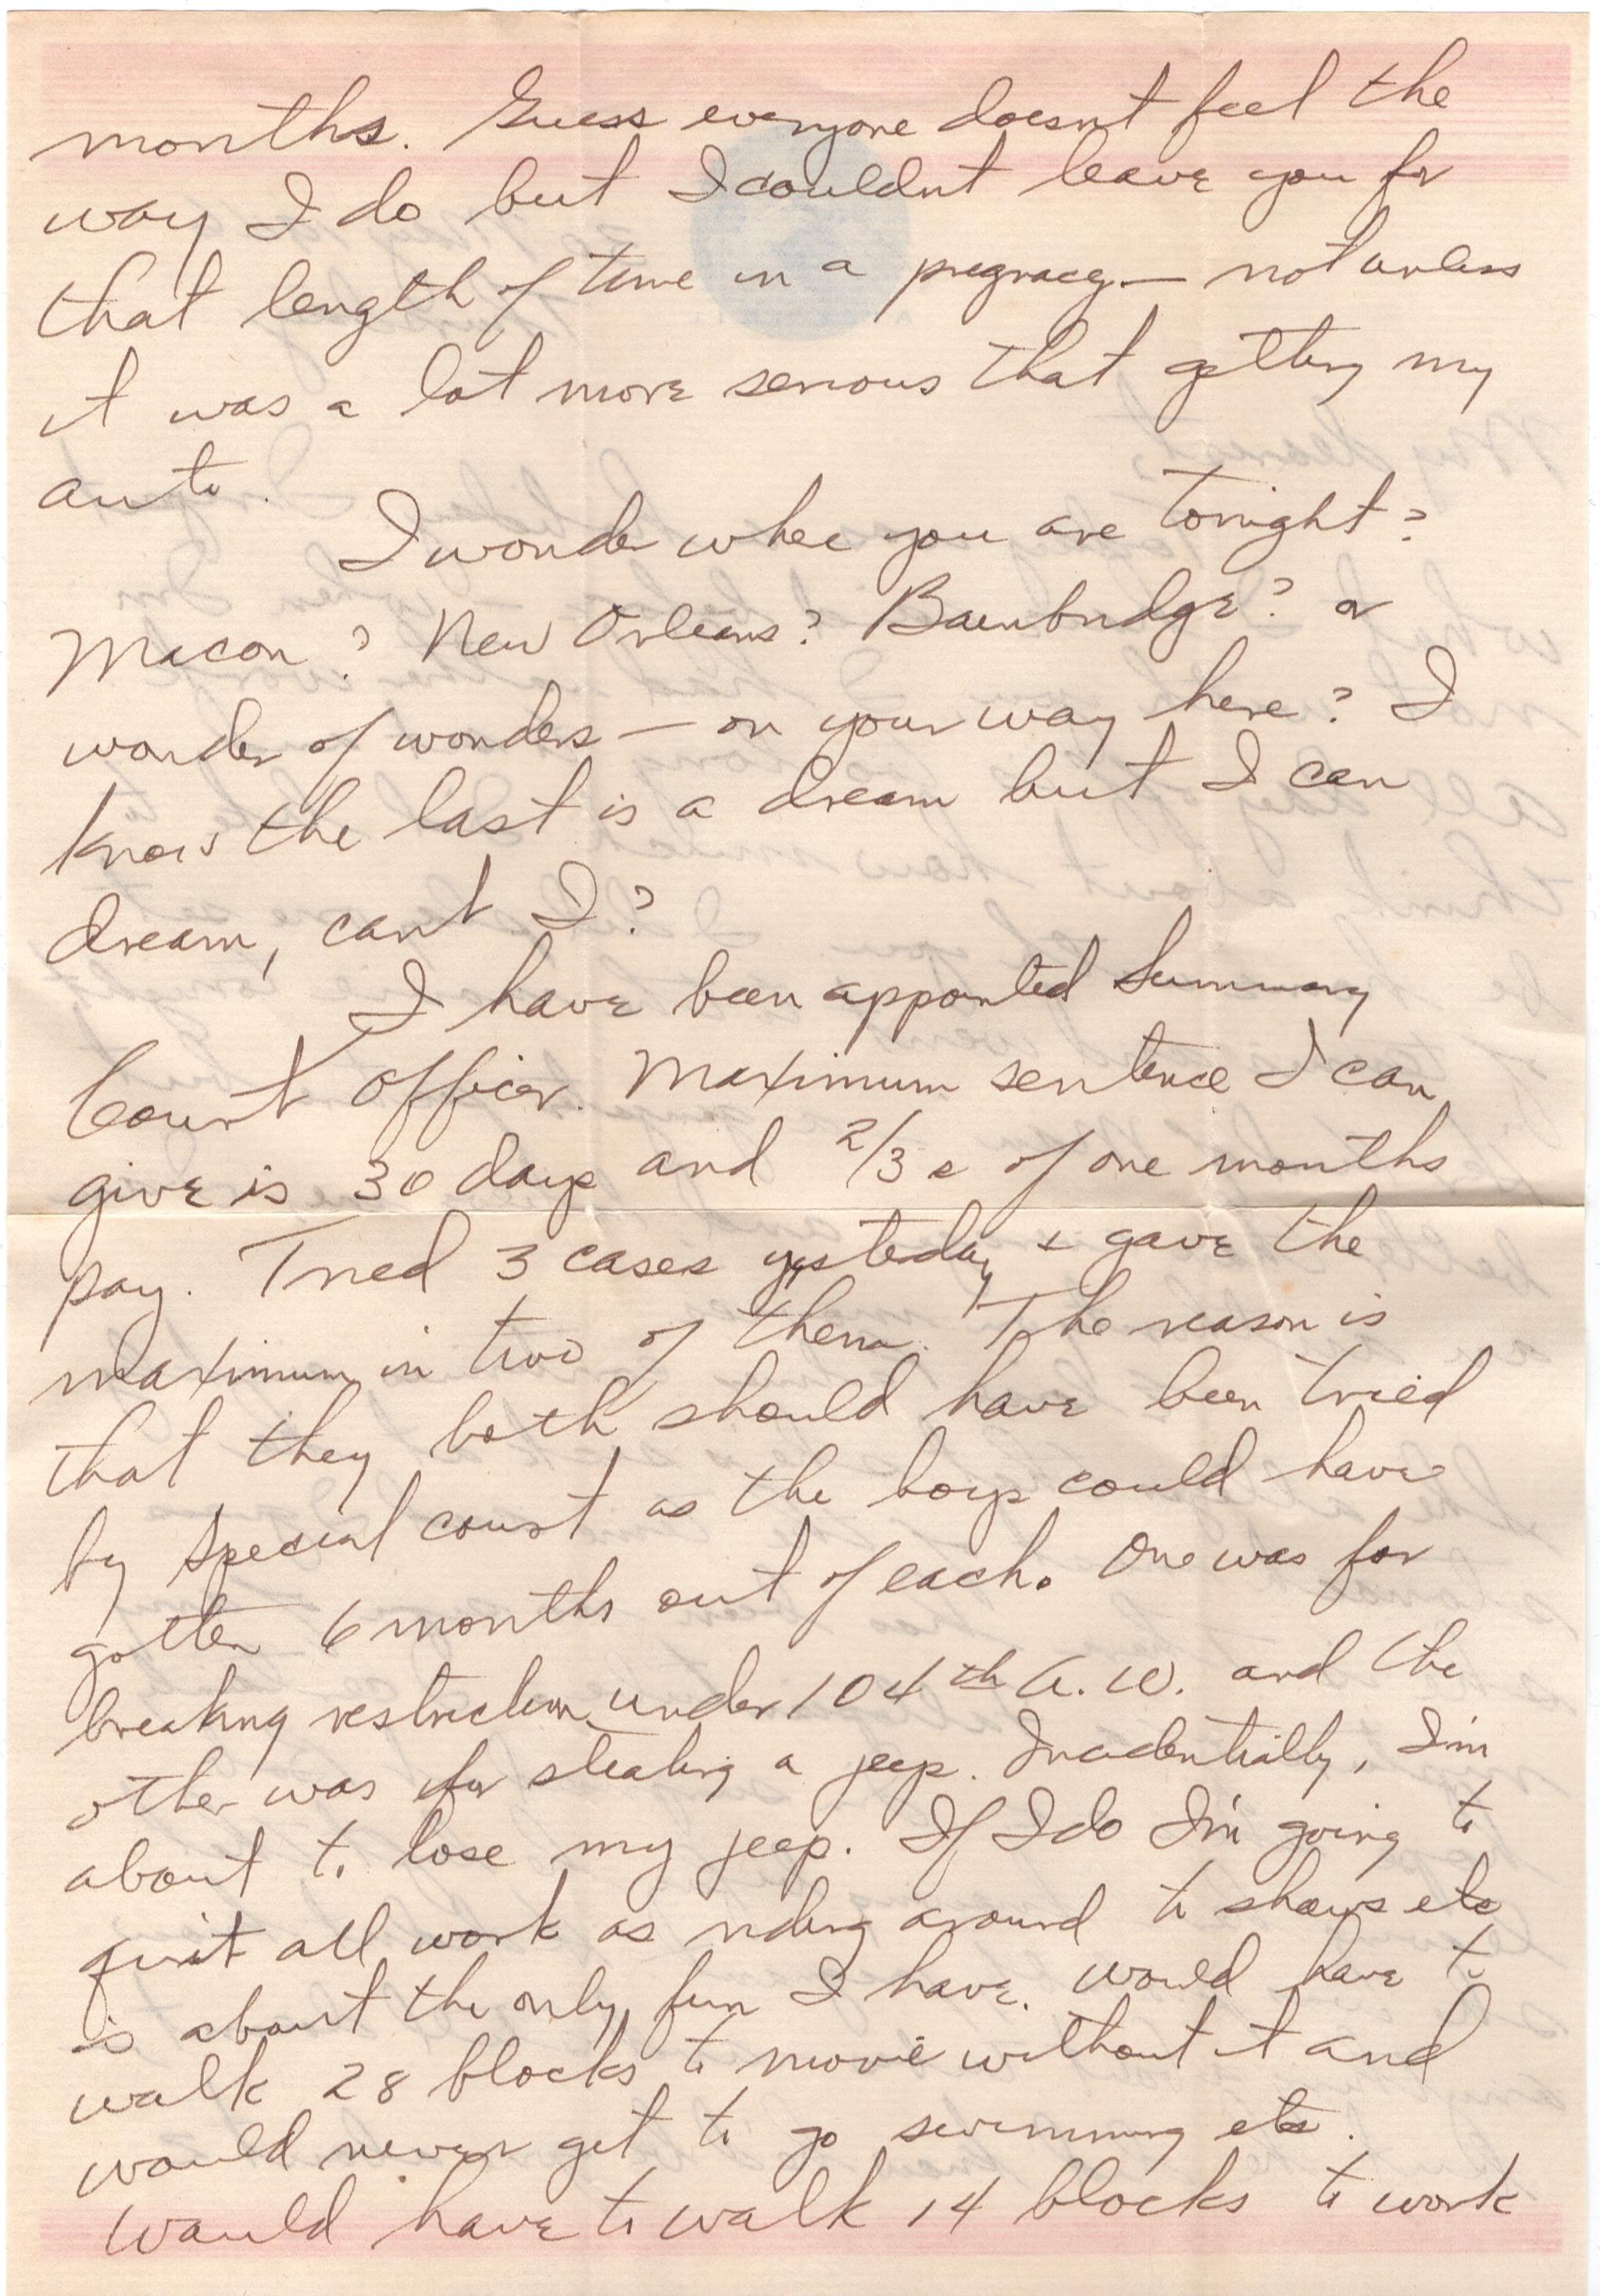 months. Guess everyone doesnt feel the
way I do but I couldnt leave you for
that length of time in a pregnacy — not unless
it was a lot more serious that getting my
auto.
I wonder whee you are tonight?
Macon? New Orleans? Bainbridge? or
wonder of wonders — on your way here? I
know the last is a dream but I can
dream, cant I?
I have been appointed Summary
Court Officer. Maximum sentence I can
give is 30 days and 2/3s of one months
pay. Tried 3 cases yesterday + gave the
maximum in two of them. The reason is
that they both should have been tried
by Special court as the boys could have
gotten 6 months out of each. One was for
breaking restriction under 104th A.W. and the
other was for stealing a jeep. Incidentially, I'm
about to lose my jeep. If I do I'm going to
quit all work as riding around to shows etc
is about the only fun I have. Would have to
walk 28 blocks to movie without it and
would never get to go swimming etc.
Would have to walk 14 blocks to work